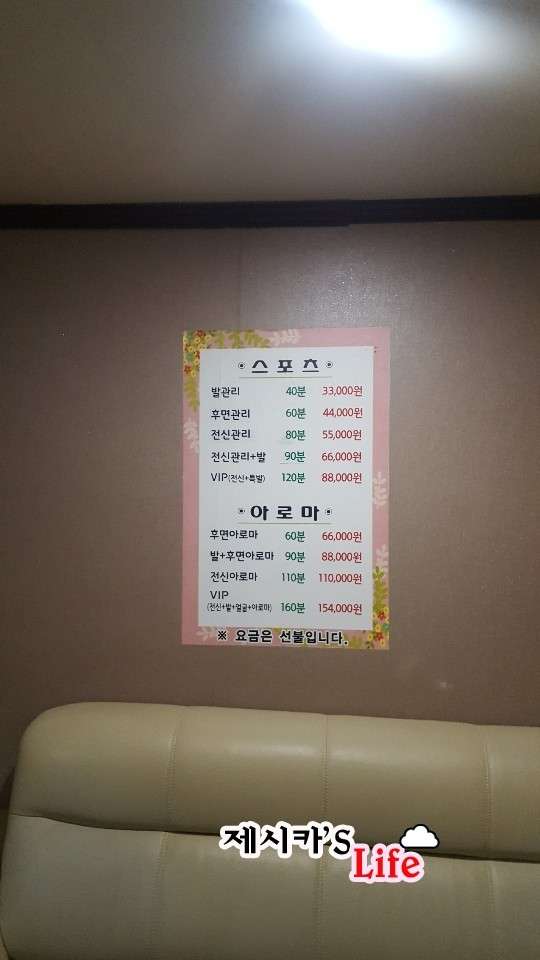 스포츠
발관리 40분 33,000원
후면관리 60분 44,000원
전신관리 80분 55,000원
전신관리+발 90분 66,000원
VIP(전신+특발) 120분 88,000원
아로마
후면아로마 60분 66,000원
발+후면아로마 90분 88,000원
전신아로마 110분 110,000원
VIP
(전신+발+얼굴+아로마) 160분 154,000원
※ 요금은 선불입니다.
제시카's
Life